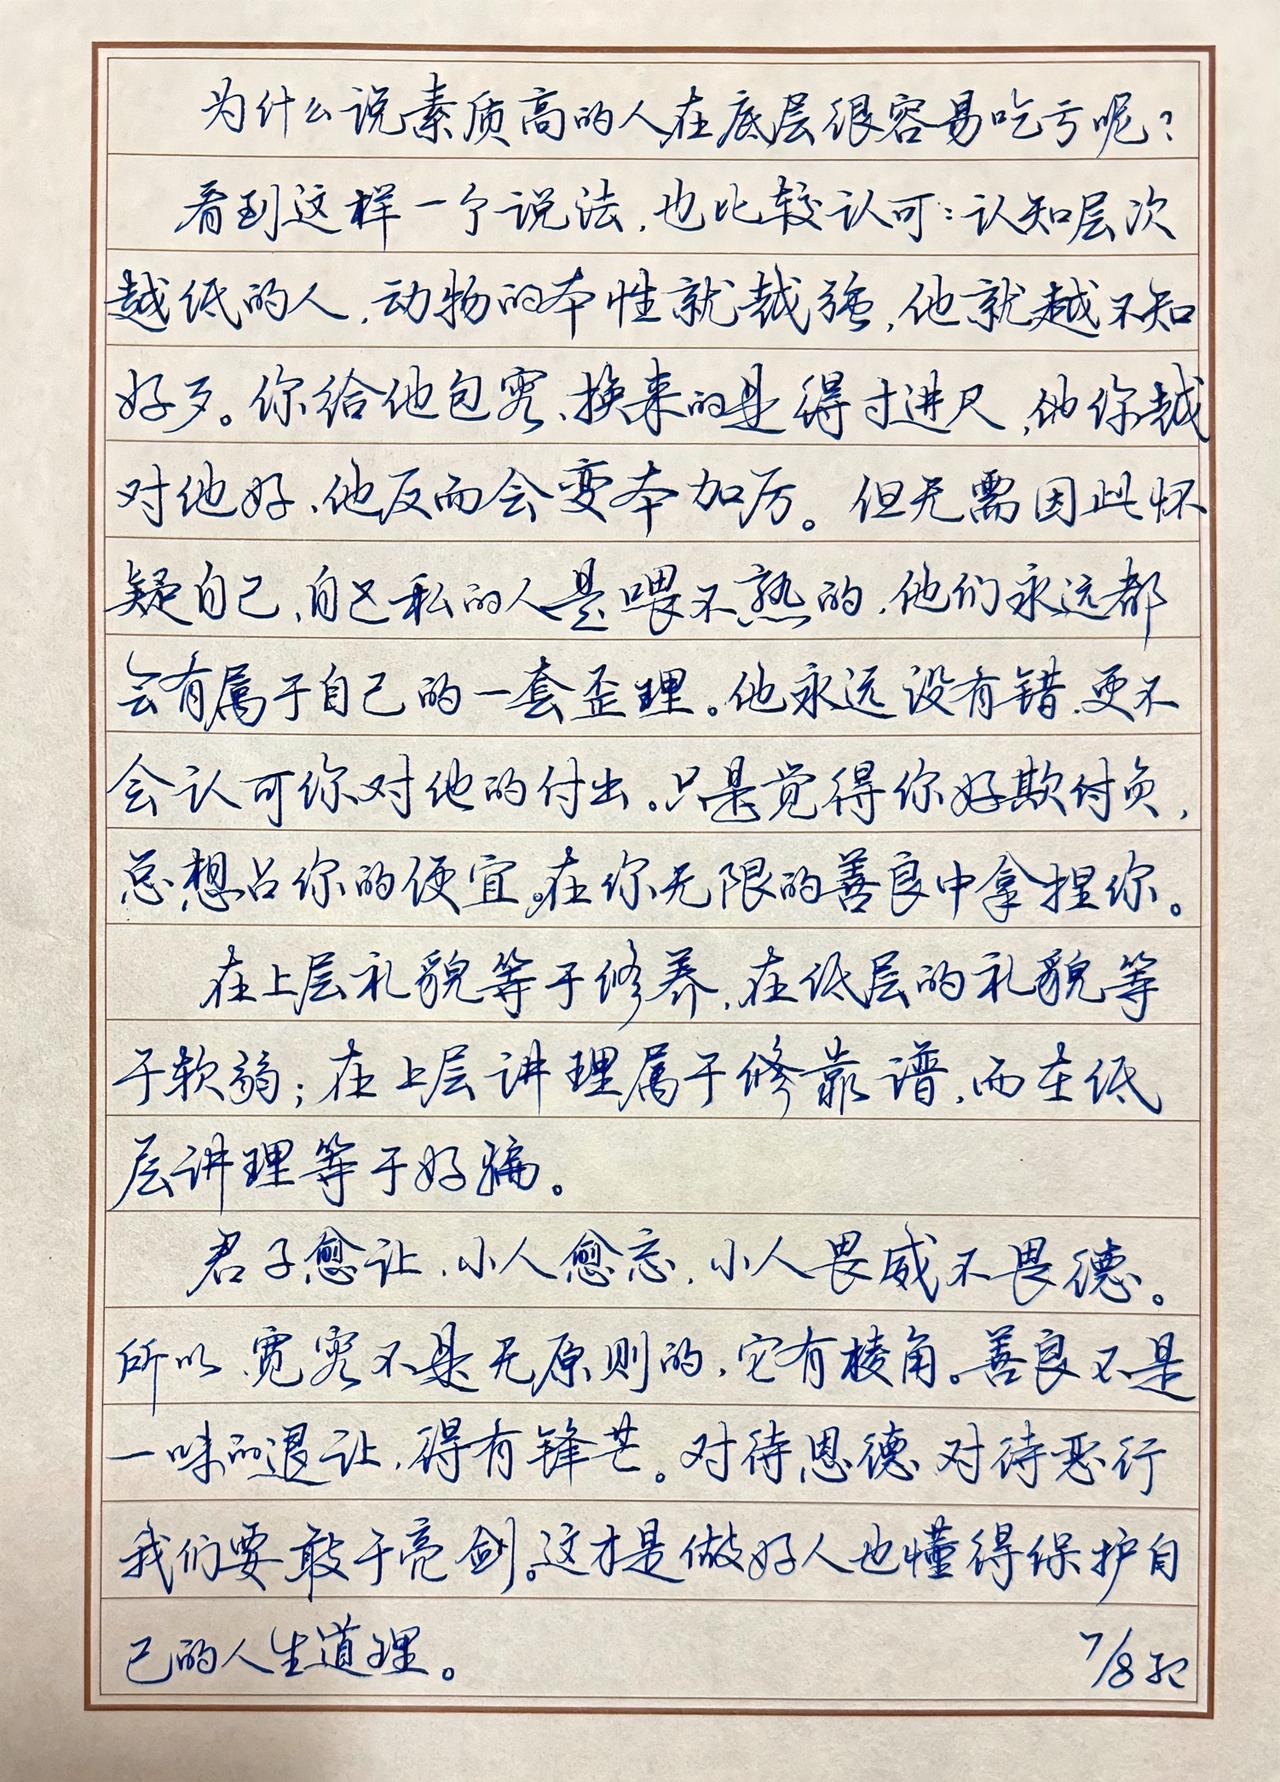 为什么说素质高的人在底层很容易吃亏呢？
看到这样一个说法，也比较认可：认知层次
越低的人，动物的本性就越强，他就越不知
好歹。你给他包容、换来的是得寸进尺，他你越
对他好，他反而会变本加厉。但无需因此怀
疑自己，自己私的人是喂不熟的，他们永远都
会有属于自己的一套歪理。他永远没有错，更不
会认可你对他的付出。只是觉得你好欺付负，
总想占你的便宜。在你无限的善良中拿捏你。
在上层礼貌等于修养，在低层的礼貌等
于软弱；在上层讲理属于修靠谱，而在低
层讲理等于好骗。
君子愈让，小人愈忘，小人畏威不畏德。
所以宽容不是无原则的，它有棱角。善良不是
一味的退让，得有锋芒。对待恩德 对待恶行
我们要敢于亮剑。这才是做好人也懂得保护自
己的人生道理。
7/8记